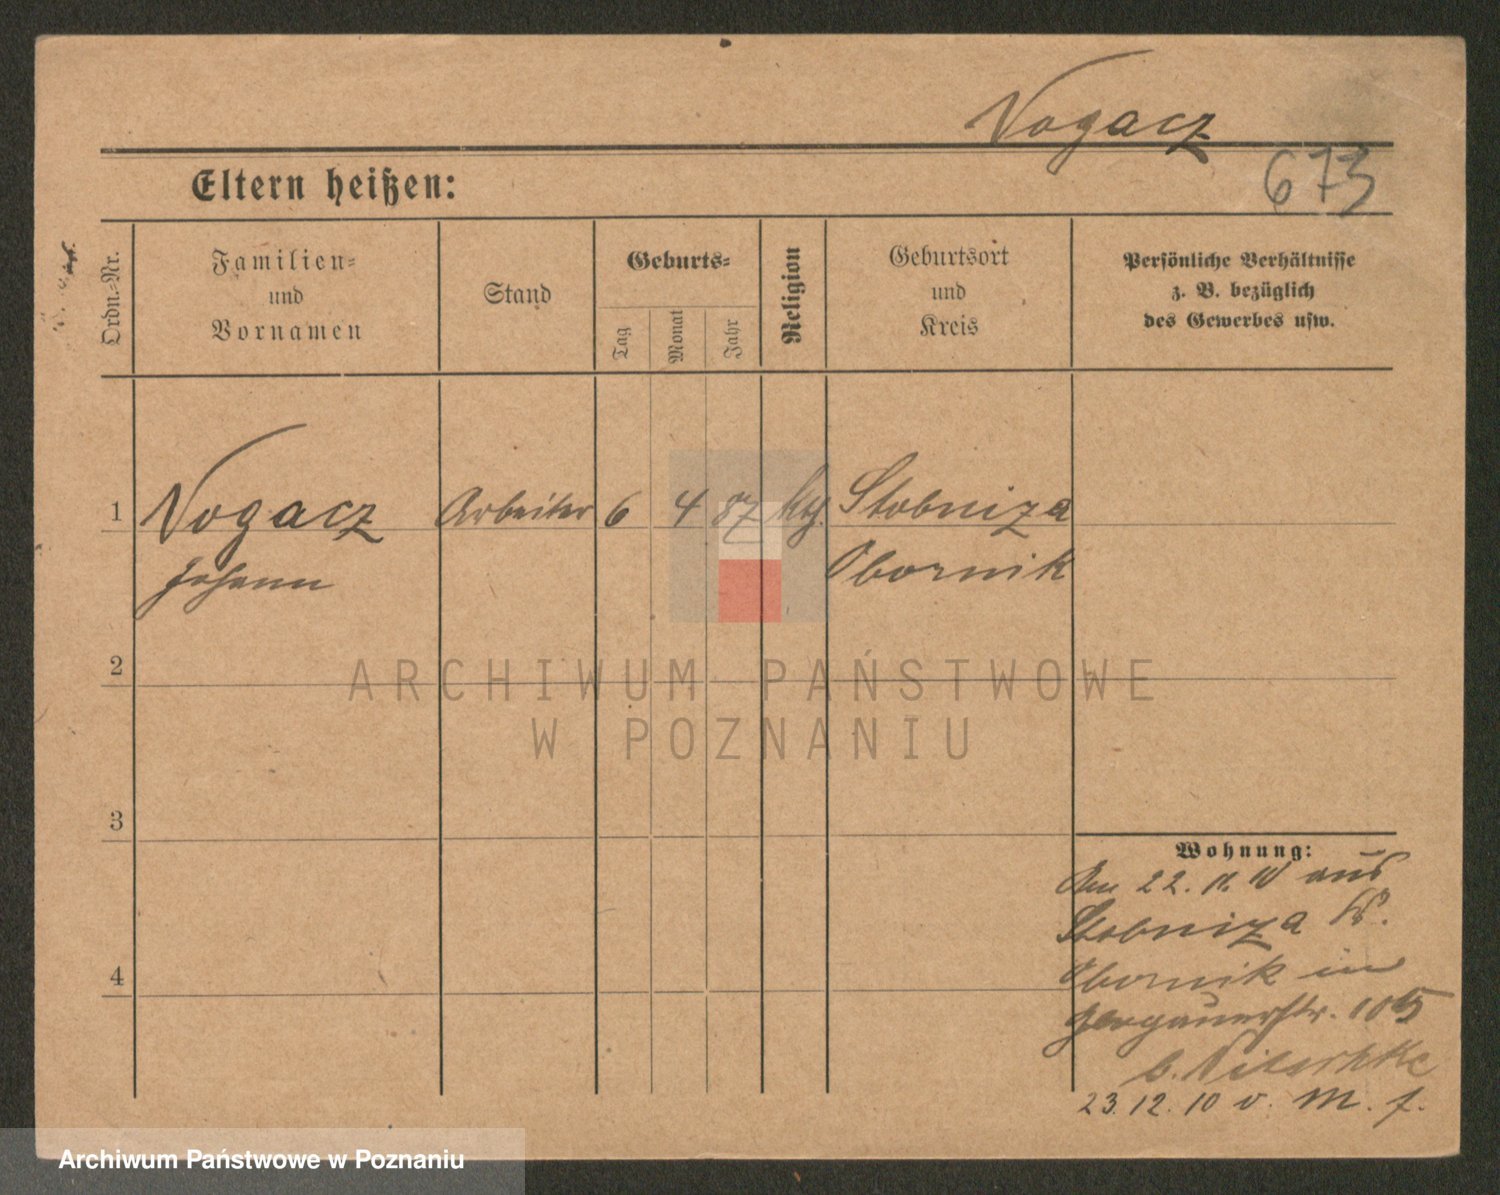 Vogacz
673
Eltern heißen:
Ordn.-Nr.
Familien-
und
Vornamen
Stand
Geburts-
Tag
Monat
Jahr
Religion
Geburtsort
und
Kreis
Persönliche Verhältnisse
z. B. bezüglich
des Gewerbes usw.
1 Vogacz Arbeiter 6 4 87 kth. Stobniza
Johann Obornik
2
ARCHIWUM PAŃSTWOWE
W POZNANIU
3
Wohnung:
22. 11. 10 aus
Stobniza
Obornik in
Glogauerstr. 105
b. Nitschke
23. 12. 10 v. M. f.
4
Archiwum Państwowe w Poznaniu